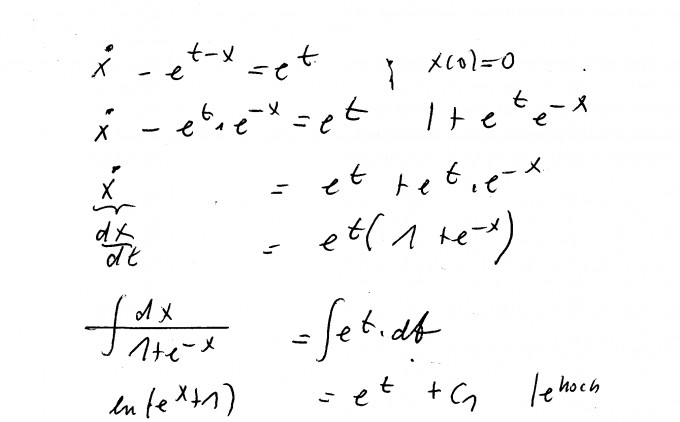 ẋ - e^{t-x} = e^t ; x(0)=0
ẋ - e^t · e^{-x} = e^t | + e^t e^{-x}
ẋ = e^t + e^t · e^{-x}
dx/dt = e^t (1 + e^{-x})
∫ dx/(1+e^{-x}) = ∫ e^t · dt
ln(e^x+1) = e^t + C₁ | e hoch